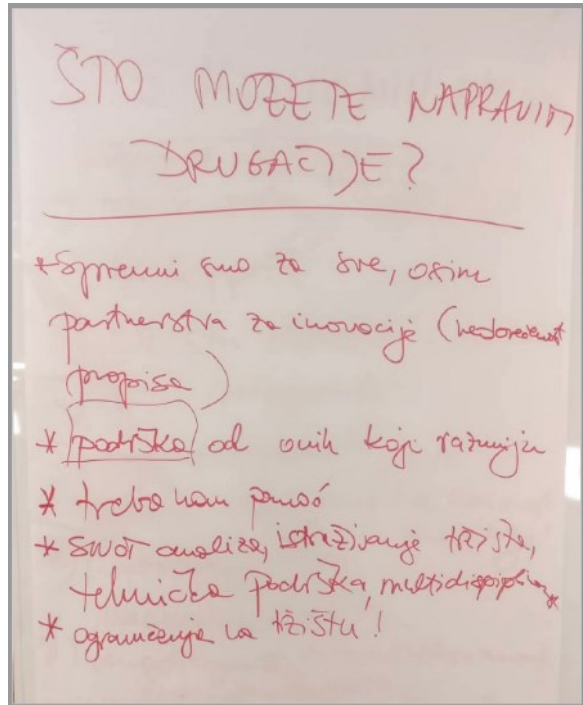 ŠTO MOŽETE NAPRAVITI
DRUGAČIJE?
* Spremni smo za sve, osim
partnerstva za inovacije (nedorečenost
propisa)
* podrška od onih koji razumiju
* treba nam pomoć
* SWOT analiza, istraživanje tržišta,
tehnička podrška,
* ograničenje na tržištu!